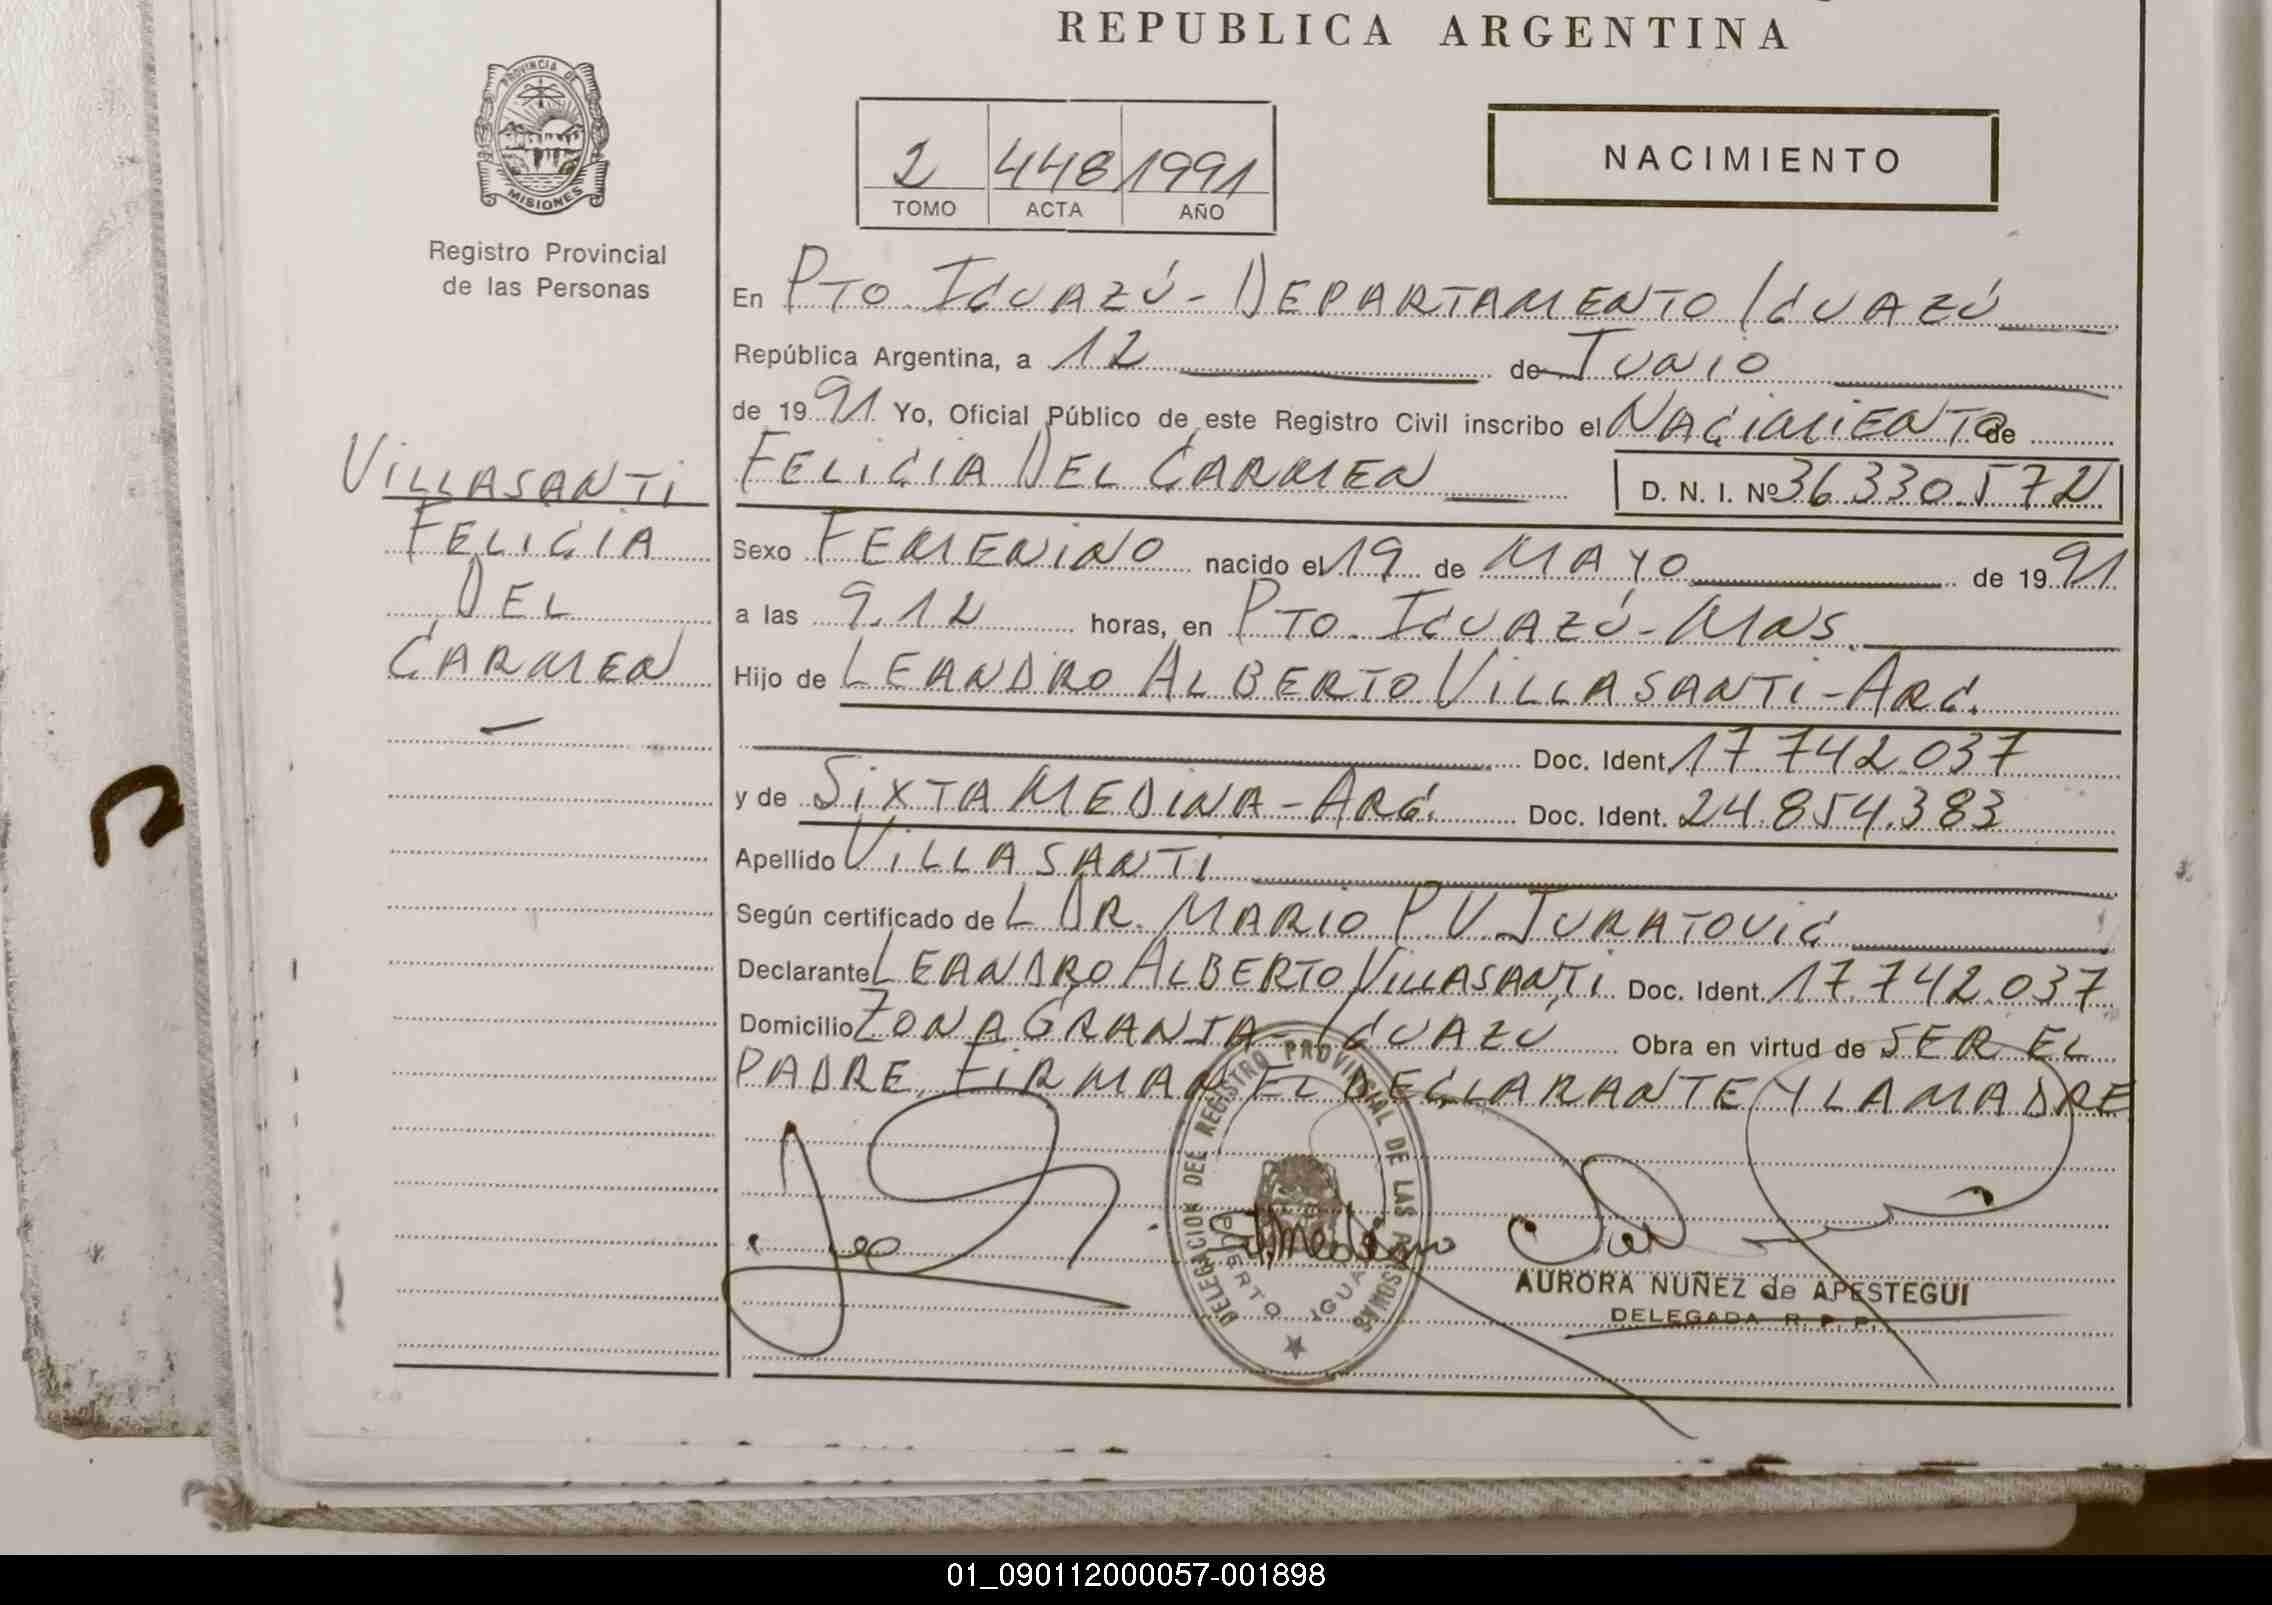 REPUBLICA ARGENTINA
PROVINCIA DE
MISIONES
Registro Provincial
de las Personas
2 448 1991
TOMO ACTA AÑO
NACIMIENTO
En PTO. IGUAZÚ - DEPARTAMENTO IGUAZÚ
República Argentina, a 12 de JUNIO
de 1991 Yo, Oficial Público de este Registro Civil inscribo el NACIMIENTO de
FELICIA DEL CARMEN D. N. I. Nº 36.330.572
VILLASANTI
FELICIA
DEL
CARMEN
Sexo FEMENINO nacido el 19 de MAYO de 1991
a las 9.12 horas, en PTO. IGUAZÚ - MNS.
Hijo de LEANDRO ALBERTO VILLASANTI - ARG.
Doc. Ident. 17.742.037
y de SIXTA MEDINA - ARG. Doc. Ident. 24.854.383
Apellido VILLASANTI
Según certificado de L DR. MARIO P. V. JURATOVIC
Declarante LEANDRO ALBERTO VILLASANTI Doc. Ident. 17.742.037
Domicilio ZONA GRANJA - IGUAZU Obra en virtud de SER EL
PADRE, FIRMAN EL DECLARANTE Y LA MADRE
DELEGACION DEL REGISTRO PROVINCIAL DE LAS PERSONAS
PUERTO IGUAZU
AURORA NUÑEZ de APESTEGUI
DELEGADA R. P. P.
01_090112000057-001898